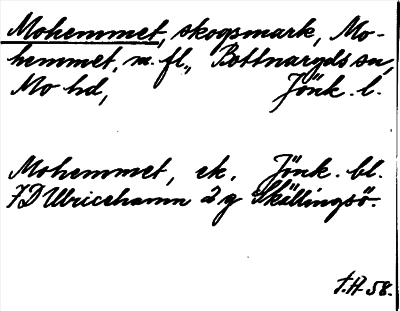 Mohemmet, skogsmark, Mo-
hemmet, m. fl., Bottnaryds sn,
Mo hd, Jönk. l.
Mohemmet, ek. Jönk. bl.
7D Ulricehamn 2 g Skällingsö.
T.A. 58.